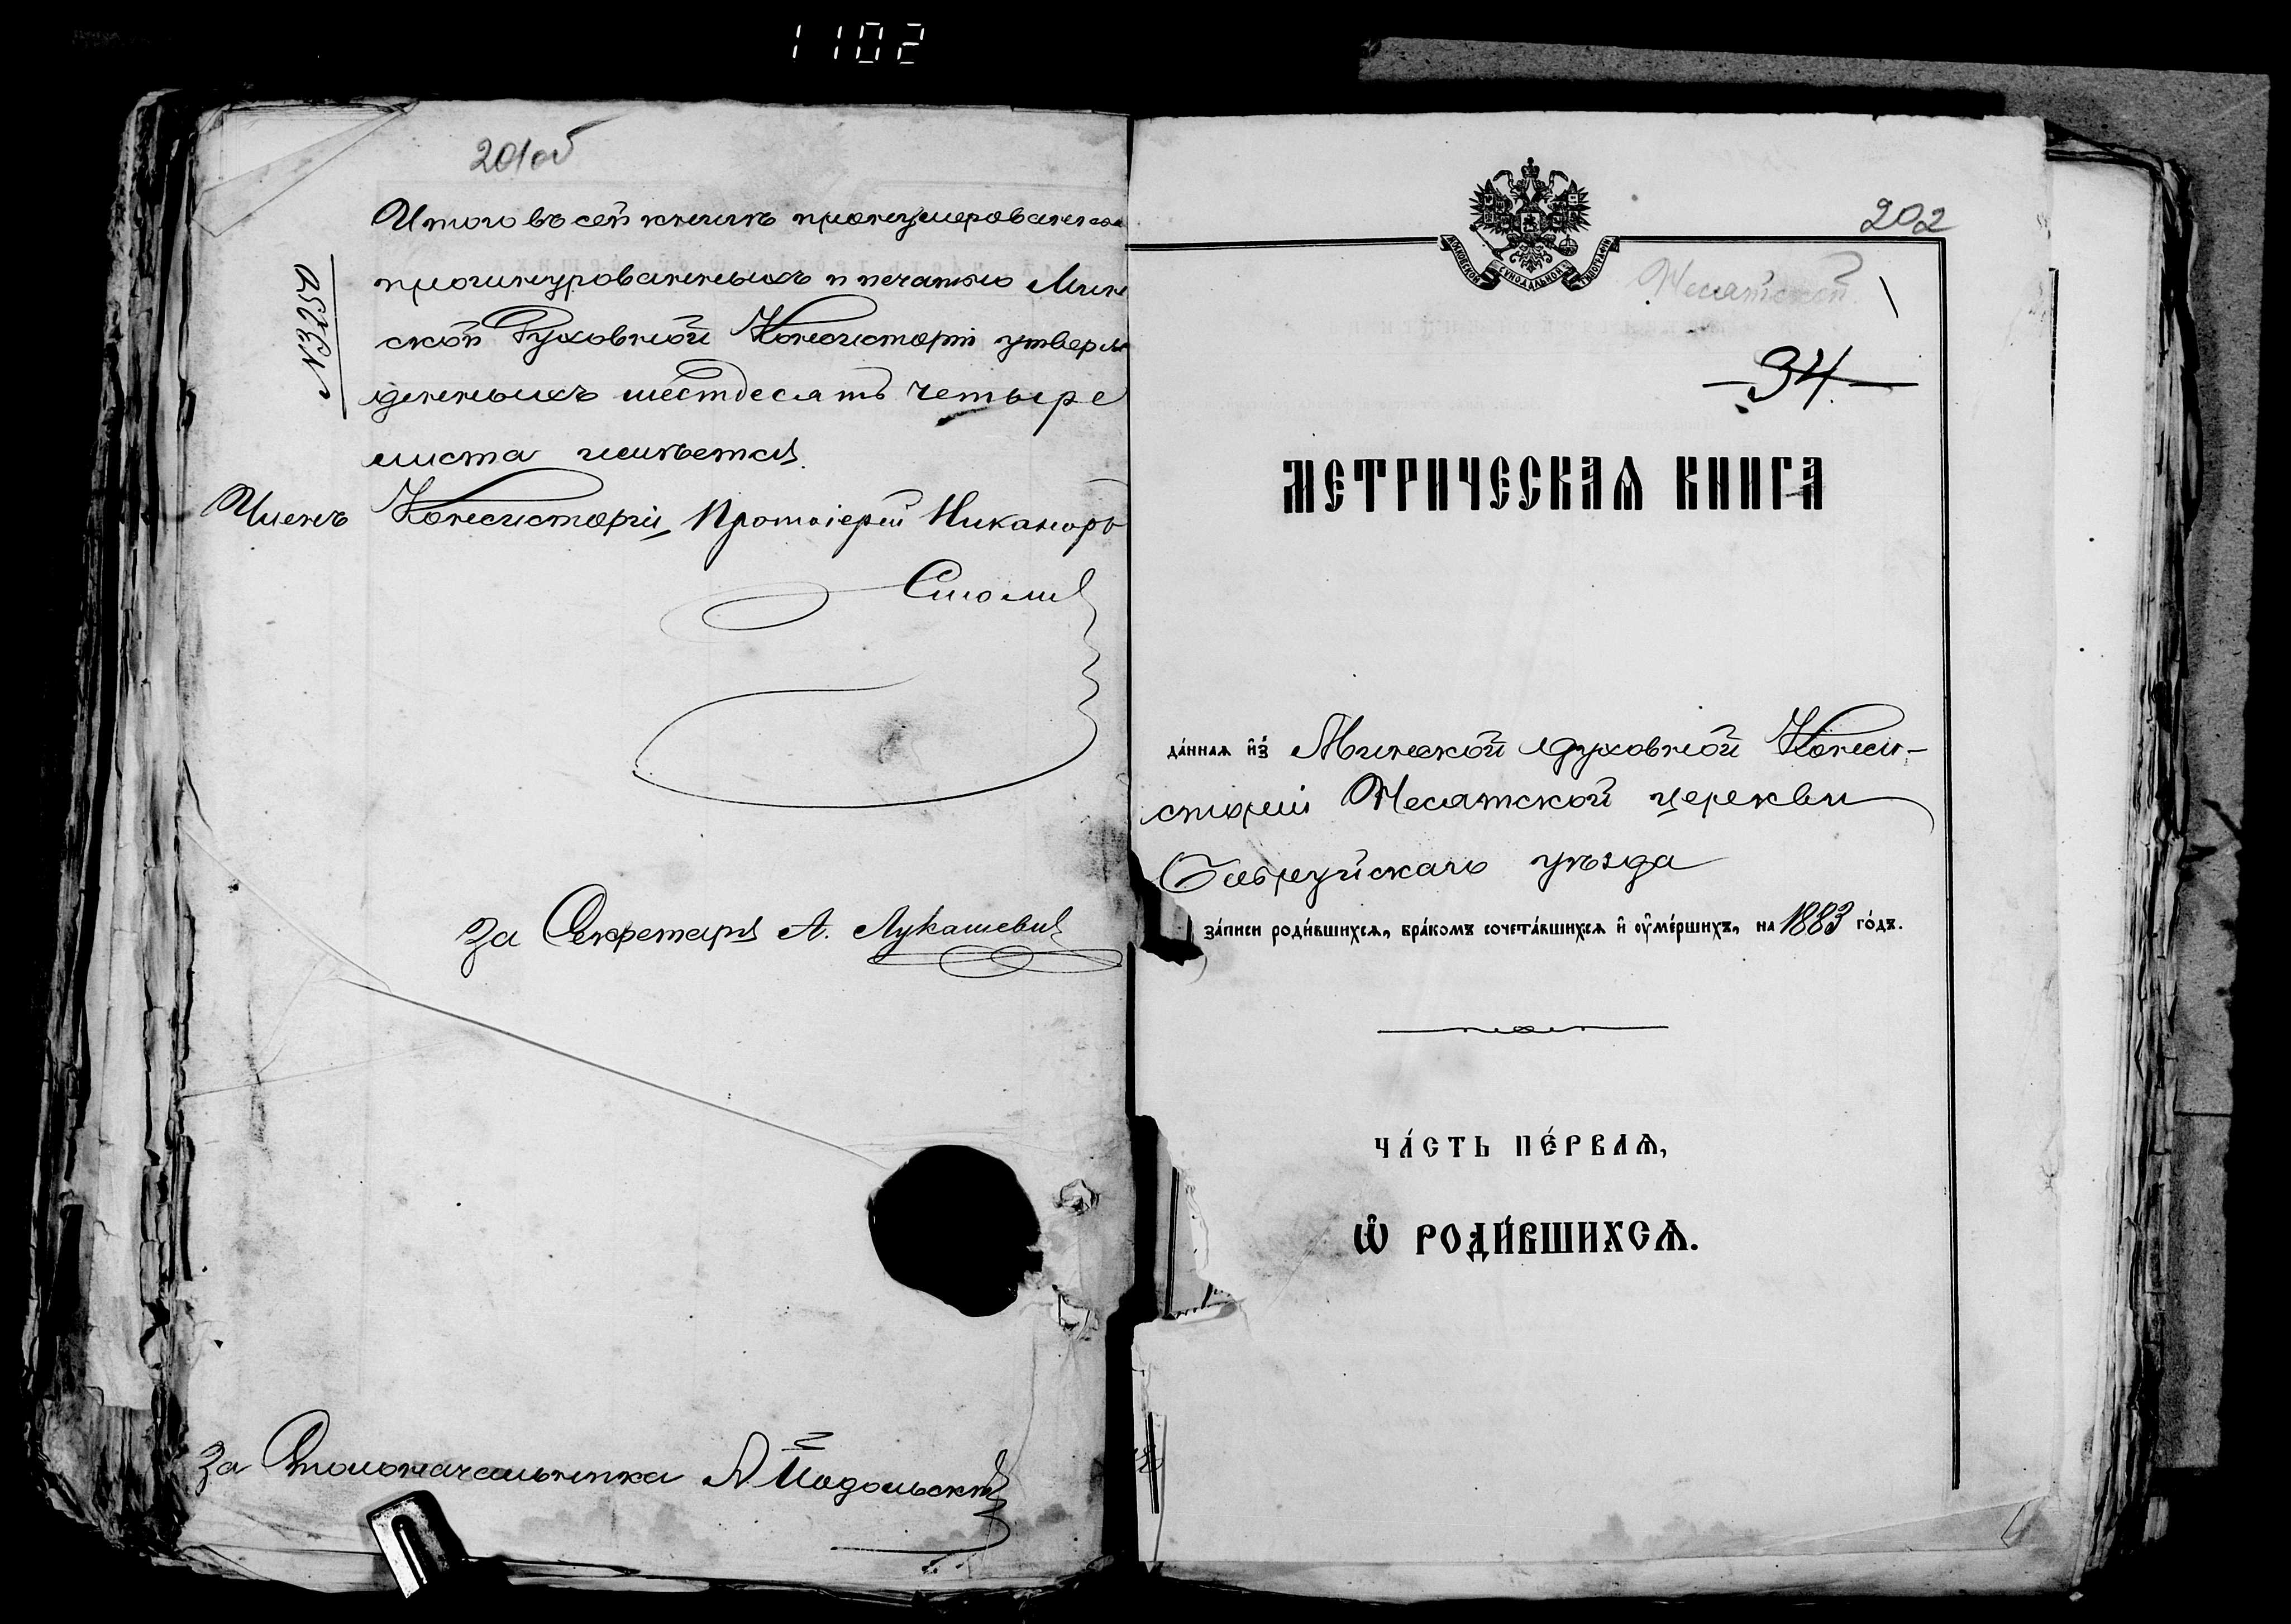 1102
201об
Итого въ сей книгѣ пронумерованныхъ
прошнурованныхъ и печатью Мин
ской Духовной Консисторіи утверж
денныхъ шестдесятъ четыре
листа имѣется.
№3250
Членъ Консисторіи, Протоіерей Никаноръ
За Секретаря А. Лукашевич
За Столоначальника А Подольскій
МОСКОВСКОЙ СѴНОДАЛЬНОЙ ТИПОГРАФІИ
202
34
МЕТРИЧЕСКАѦ КНИГА
да́ннаѧ и҆з̾ Минской духовной Конси-
сторіи Несятской церкви
Бобруйскаго уѣзда
за́писи роди́вшихсѧ, бра́комъ сочета́вшихсѧ и҆ ᲂу҆ме́ршихъ, на 1883 го́дъ.
ЧА́СТЬ ПЕ́РВАѦ,
Ѽ РОДИ́ВШИХСѦ.